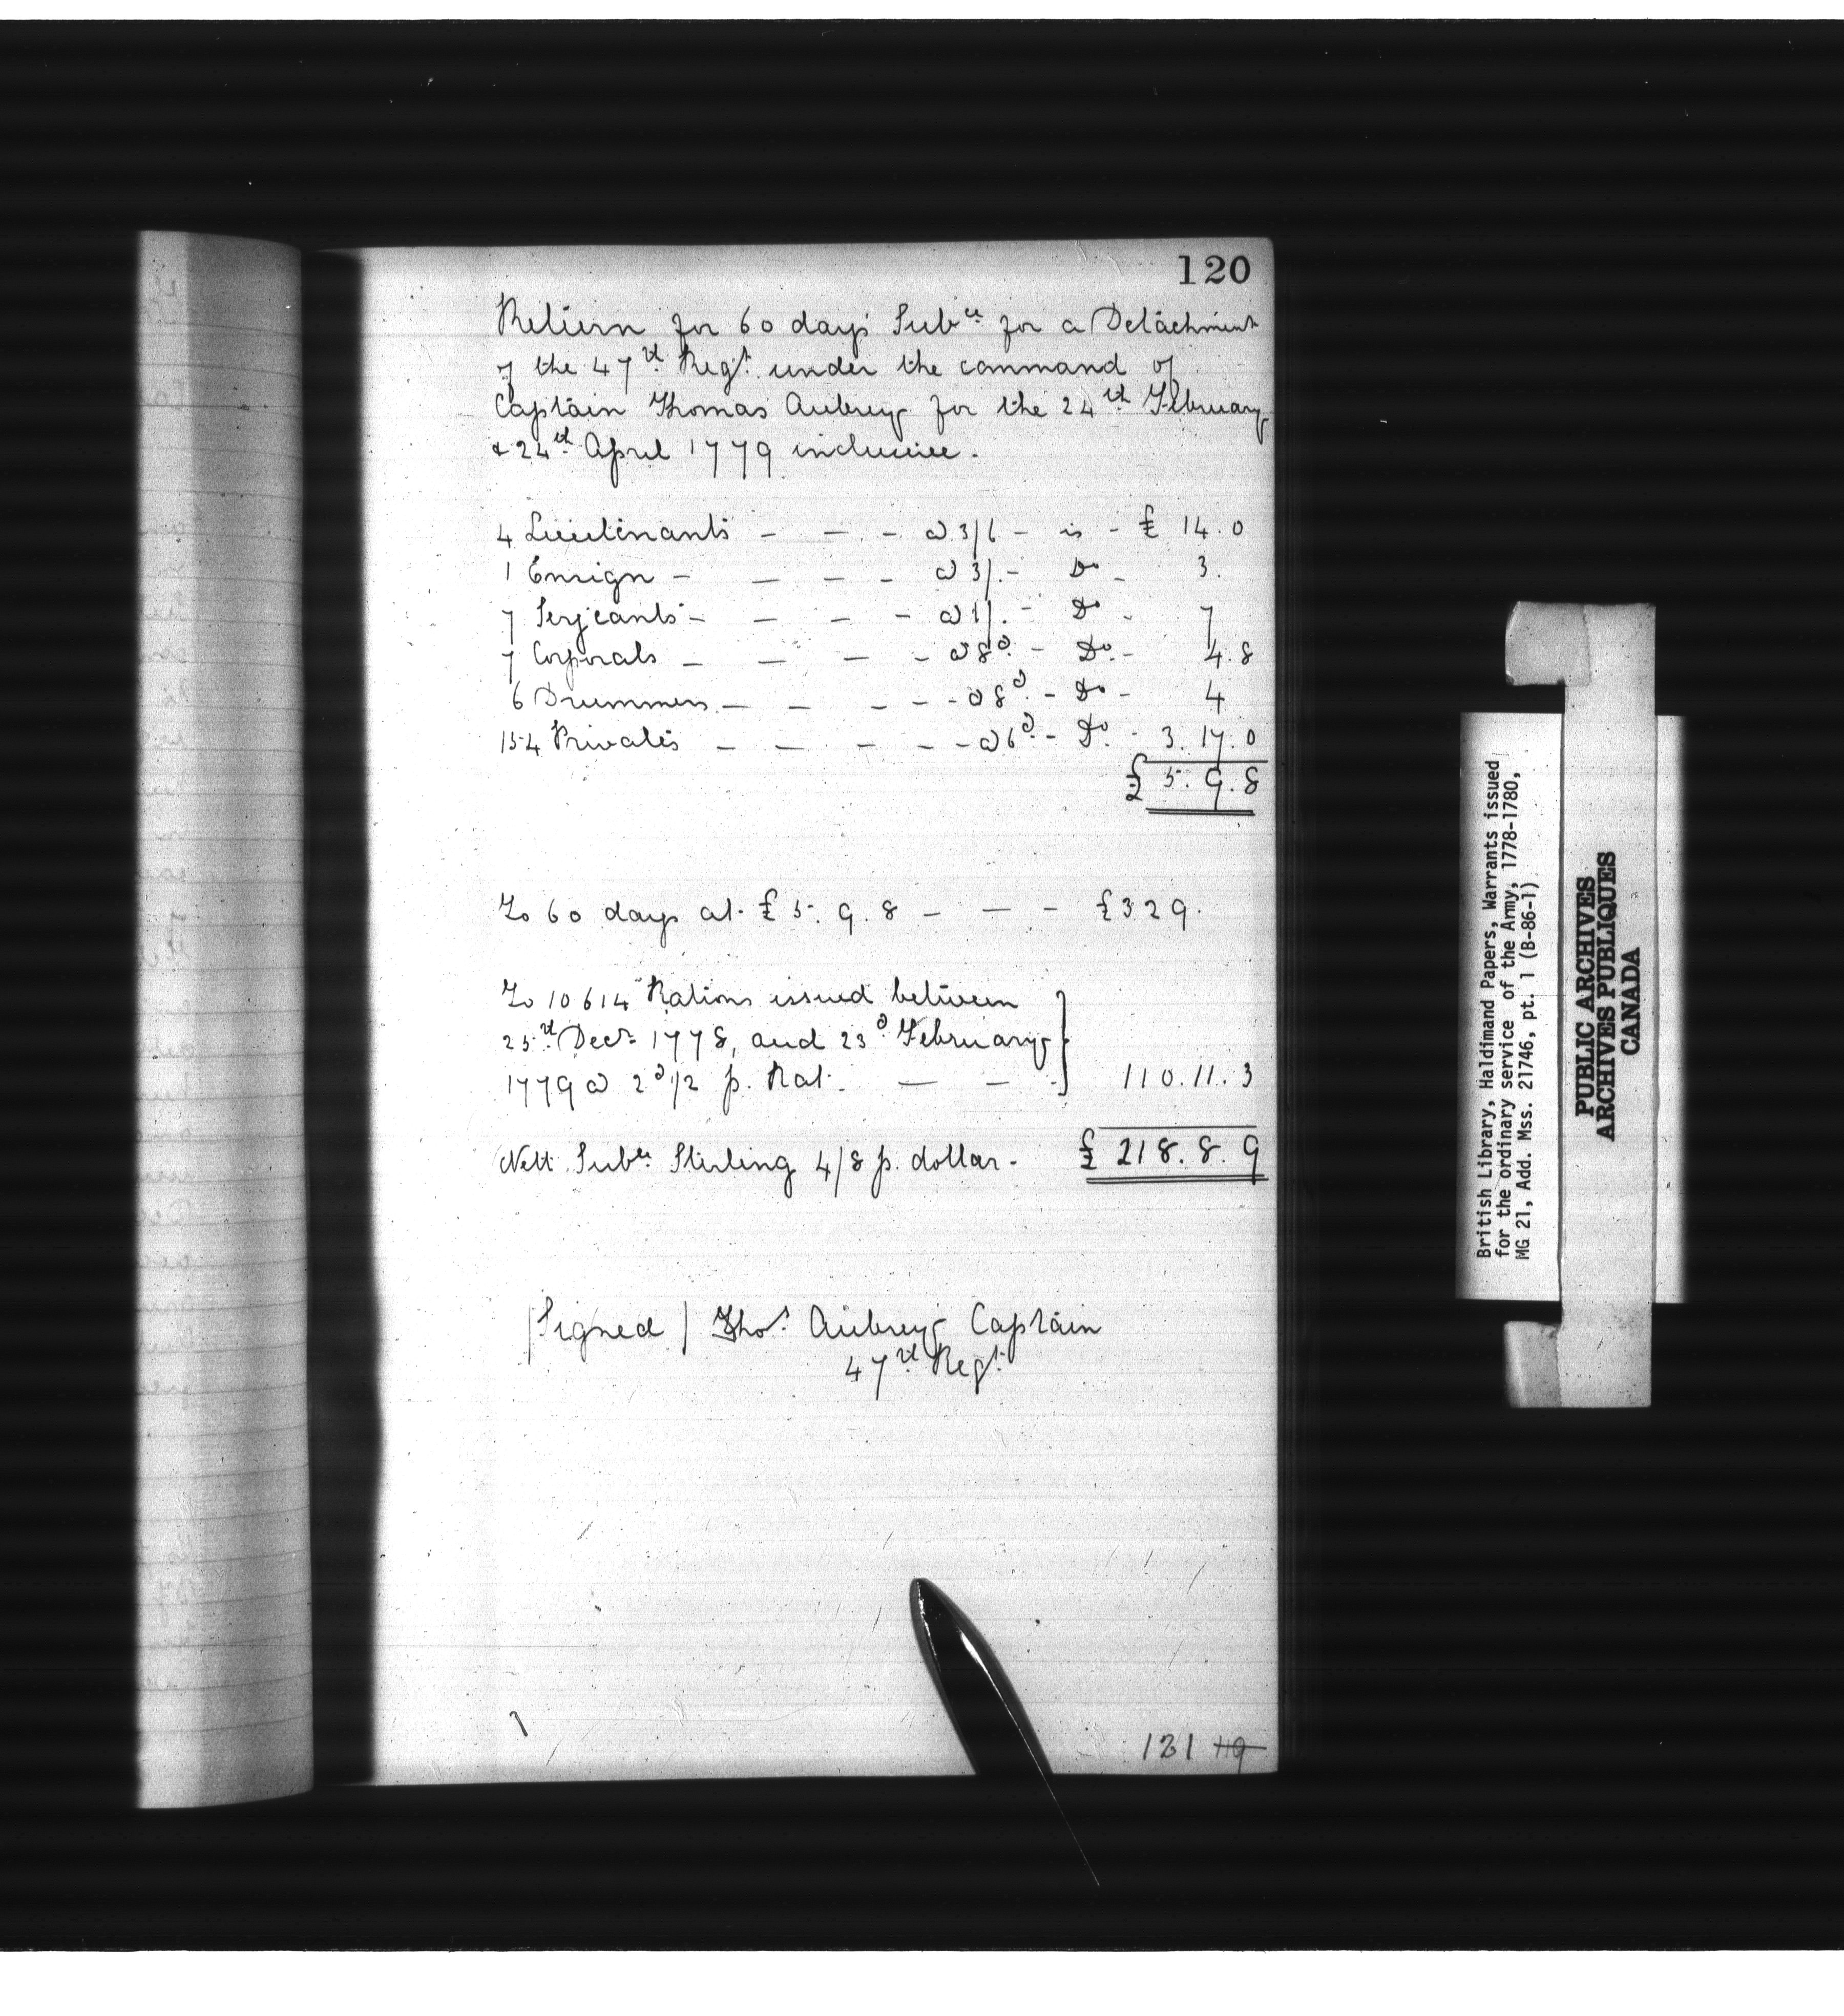 120
Return for 60 days Sub^ce for a Detachment
of the 47th Regt. under the command of
Captain Thomas Aubrey for the 24th February
& 24th April 1779 inclusive.
4 Lieutenants - - - @ 3/6 - is - £ 14.0
1 Ensign - - - - @ 3/. - Do - 3.
7 Serjeants - - - - @ 1/. - Do - 7
7 Corporals - - - - @ 8d. - Do. - 4.8
6 Drummers - - - - - @ 8d. - Do - 4
154 Privates - - - - - @ 6d. - Do. - 3.17.0
£ 5.9.8
To 60 days at £ 5.9.8 - - - £329.
To 10614 Rations issued between
25th Decr. 1778, and 23d February
1779 @ 2d 1/2 p. Rat. - - - 110.11.3
Nett Sub^ce Sterling 4/8 p. dollar - £ 218.8.9
/Signed/ Thos. Aubrey Captain
47th Regt.
131 119
British Library, Haldimand Papers, Warrants issued
for the ordinary service of the Army, 1778-1780,
MG 21, Add. Mss. 21746, pt. 1 (B-86-1)
PUBLIC ARCHIVES
ARCHIVES PUBLIQUES
CANADA